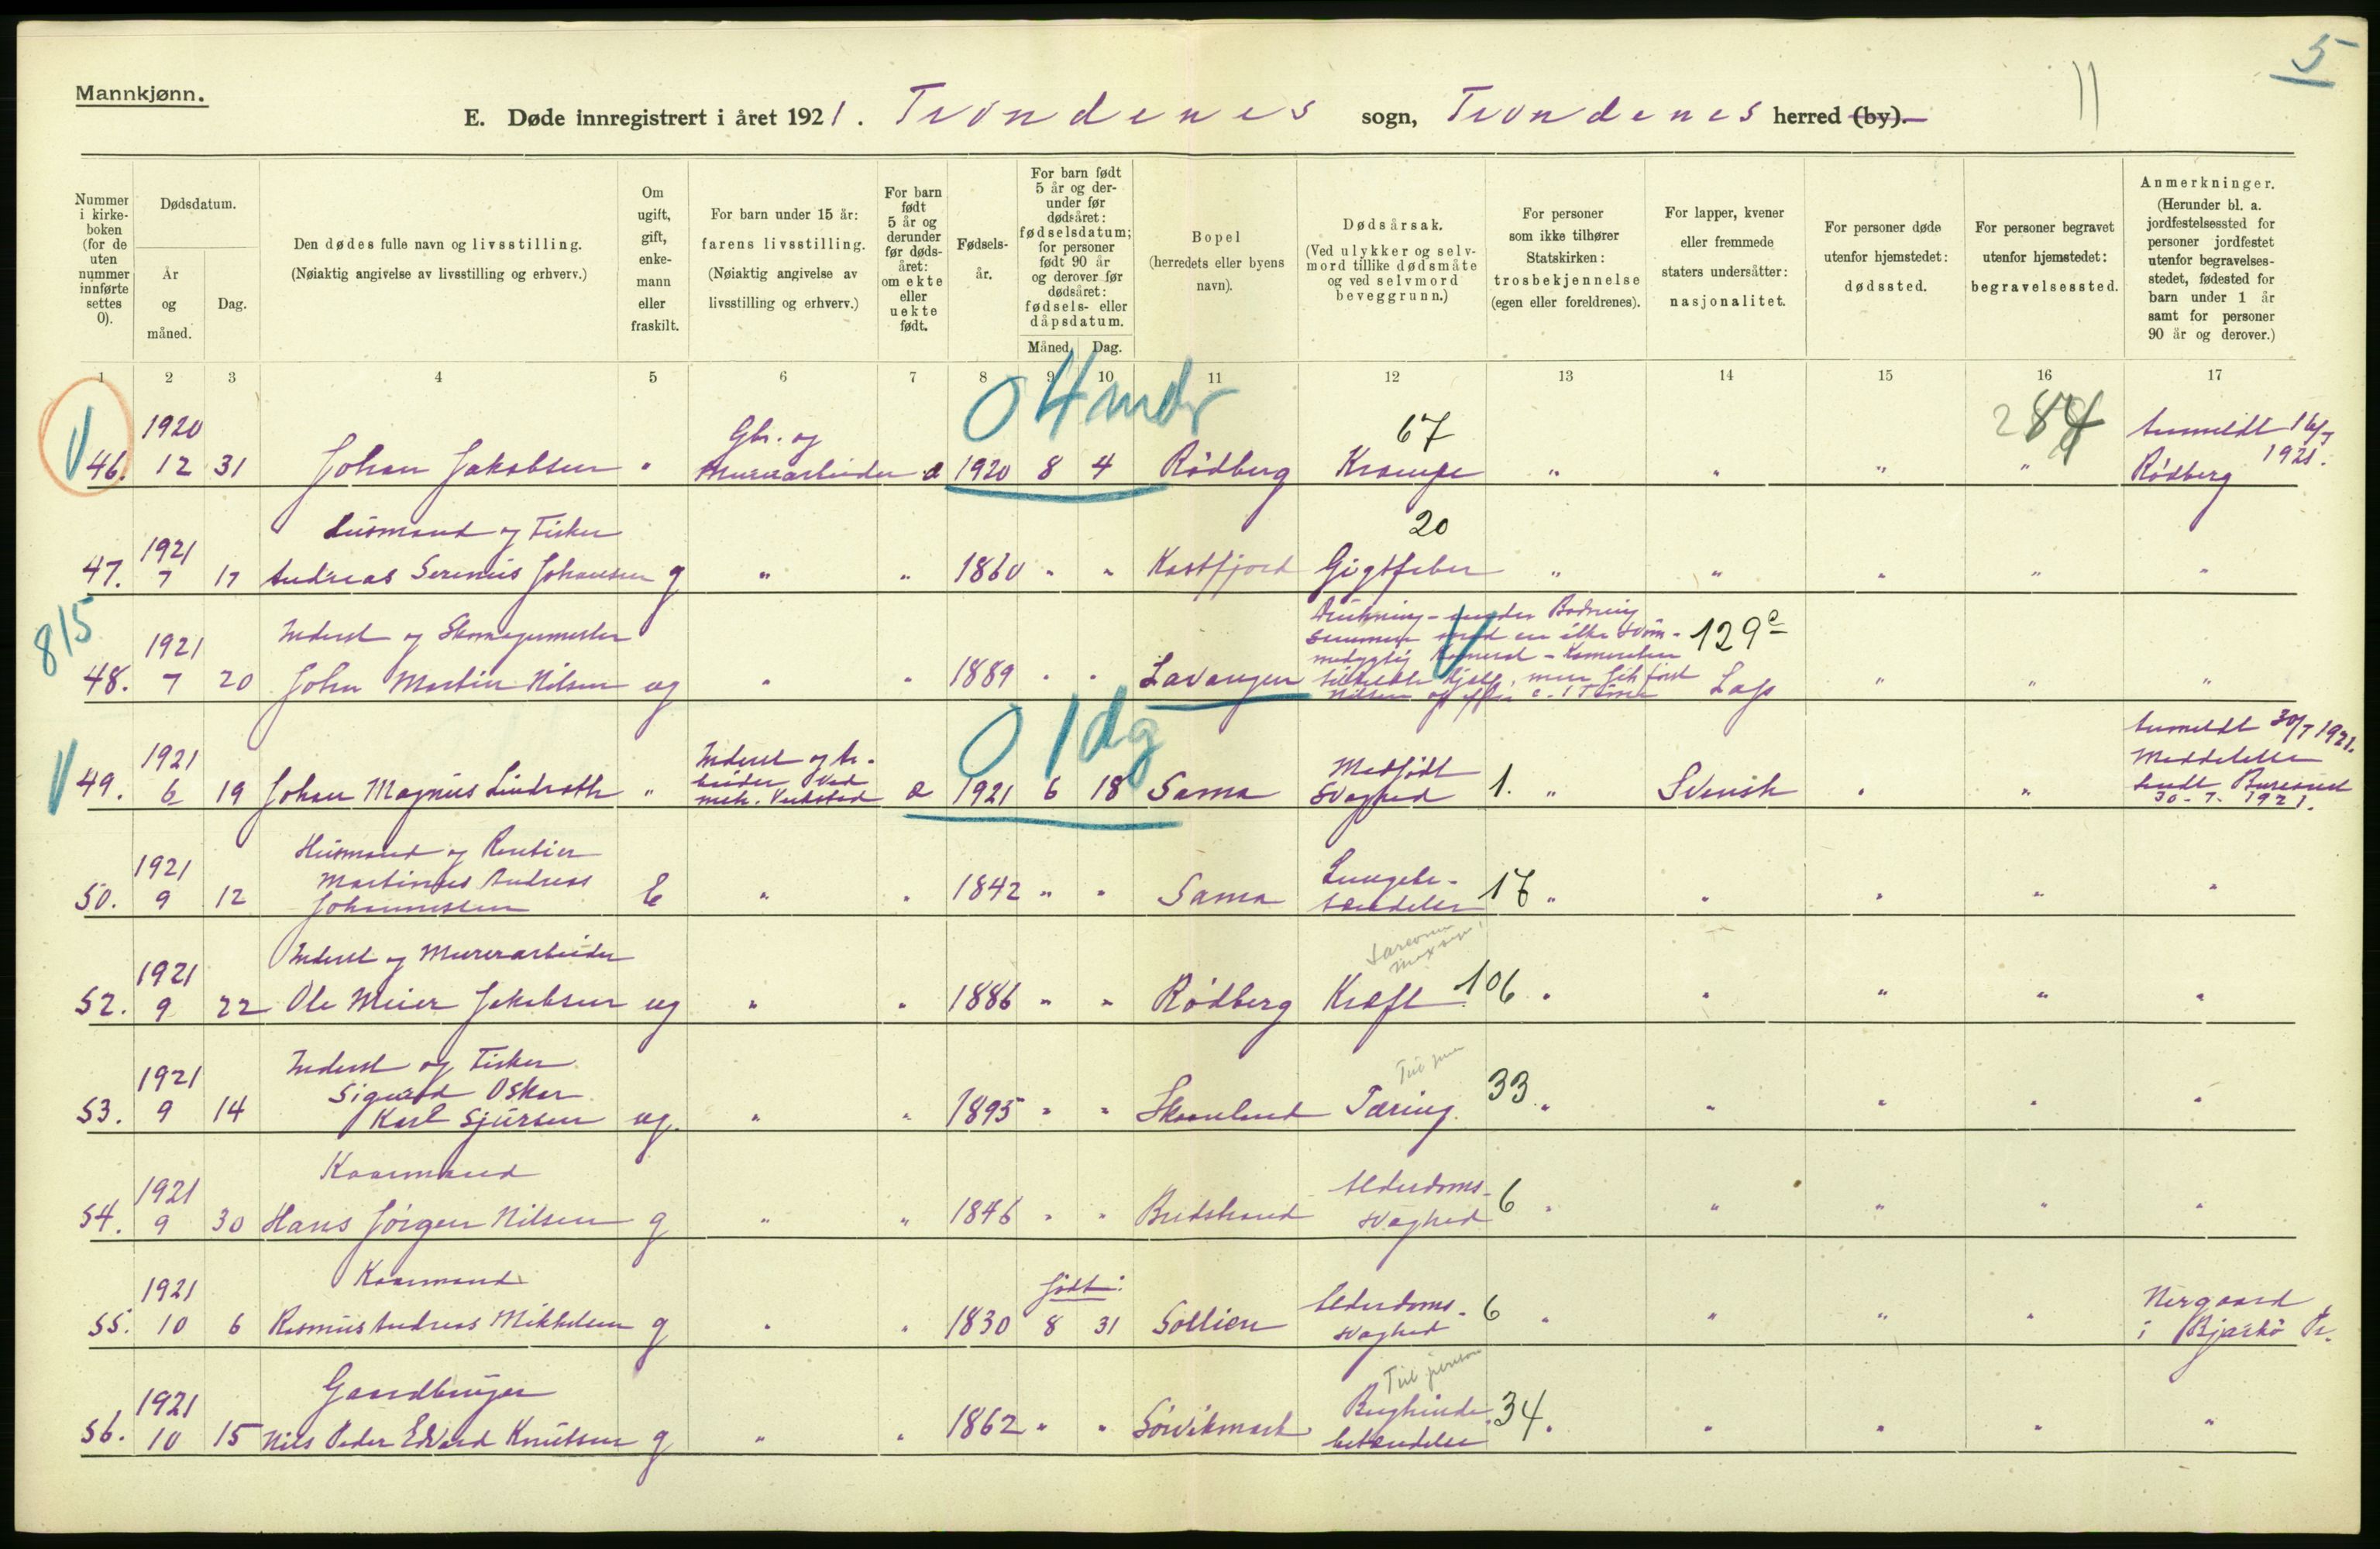 5
Mannkjønn.
E. Døde innregistrert i året 1921. Trondenes sogn, Trondenes herred (by).
11
Nummer i kirke-boken (for de uten nummer innførte settes 0).
Dødsdatum.
År og måned.
Dag.
Den dødes fulle navn og livsstilling.
(Nøiaktig angivelse av livsstilling og erhverv.)
Om ugift, gift, enke-mann eller fraskilt.
For barn under 15 år:
farens livsstilling.
(Nøiaktig angivelse av livsstilling og erhverv.)
For barn født 5 år og derunder før døds-året: om ekte eller uekte født.
Fødsels-år.
For barn født 5 år og der-under før dødsåret: fødselsdatum; for personer født 90 år og derover før dødsåret: fødsels- eller dåpsdatum.
Måned. Dag.
Bopel
(herredets eller byens navn).
Dødsårsak.
(Ved ulykker og selv-mord tillike dødsmåte og ved selvmord beveggrunn.)
For personer som ikke tilhører Statskirken: trosbekjennelse (egen eller foreldrenes).
For lapper, kvener eller fremmede staters undersåtter: nasjonalitet.
For personer døde utenfor hjemstedet: dødssted.
For personer begravet utenfor hjemstedet: begravelsessted.
Anmerkninger.
(Herunder bl. a. jordfestelsessted for personer jordfestet utenfor begravelses-stedet, fødested for barn under 1 år samt for personer 90 år og derover.)
1 2 3 4 5 6 7 8 9 10 11 12 13 14 15 16 17
0 4 mdr
284
1920
Gbr. og
67
Anmeldt 16/7
1921.
46. 12 31 Johan Jakobsen " Murerarbeider e 1920 8 4 Rödberg Krampe " " " " Rödberg
1921
Husmand og Fisker
20
47. 7 17 Andreas Serenius Johansen g " " 1860 " " Kastfjord Gigtfeber " " " " "
815
1921
Inderst og Skomagermester
Drukning - under Badning
sammen med en ikke svøm-
medygtig Kamerat - Kameraten
129c
48. 7 20 John Martin Nilsen ug " " 1889 " " Lavangen Hjælp, men fik først
Nilsen op efter c. 1 Time Lap " " "
0 1 dg
1921
Inderst og Ar-
beider ved
mek. Verksted
Medfødt
Svaghed
Anmeldt 30/7 1921.
Meddelelse
sendt Bureauet
30-7-1921.
49. 6 19 Johan Magnus Lindroth " e 1921 6 18 Sama 1. " Svensk " "
1921
Husmand og Rentier
Martinus Andreas
Johannessen
Lungebe-
tændelse
50. 9 12 E " " 1842 " " Sama 17 " " " " "
1921
Inderst og Murerarbeider
Sarcom
52. 9 22 Ole Meier Jakobsen ug " " 1886 " " Rödberg Kræft 106 " " " " "
1921
Inderst og Fisker
Sigurd Oskar
Karl Sjursen
53. 9 14 ug. " " 1895 " " Skaanland Tæring. 33 " " " " "
1921
Kaarmand
Alderdoms-
svaghed
54. 9 30 Hans Jörgen Nilsen g " " 1846 " " Budstrand 6 " " " " "
1921
Kaarmand
født:
Alderdoms-
svaghed
Nergaard
i Bjarkö Pr.
55. 10 6 Rasmus Andreas Mikkelsen g " " 1830 8 31 Sollien 6 " " " "
1921
Gaardbruger
Bughinde
betændelse
56. 10 15 Nils Peder Edvard Knutsen g " " 1862 " " Sörvikmark 34 " " " " "